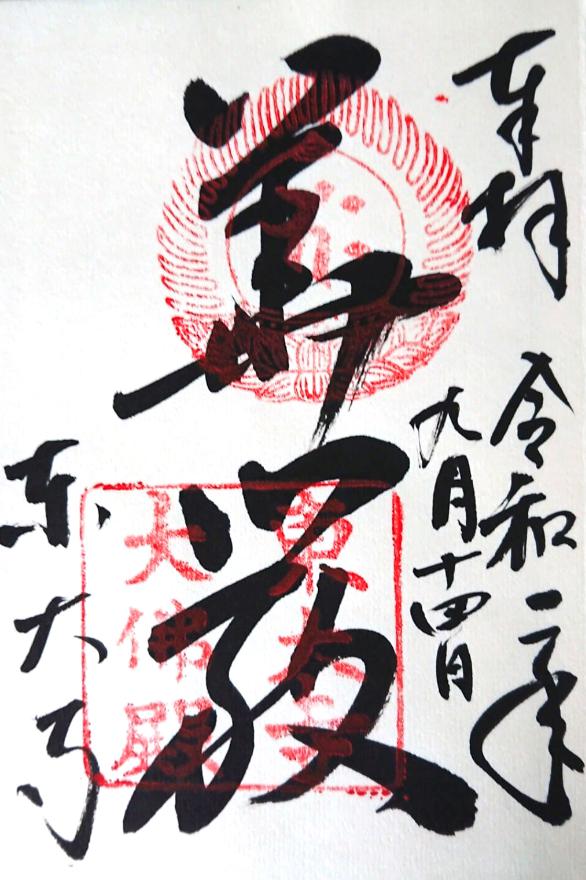 奉拝
令和二年
九月十四日
華厳
東大寺
大佛殿
東大寺